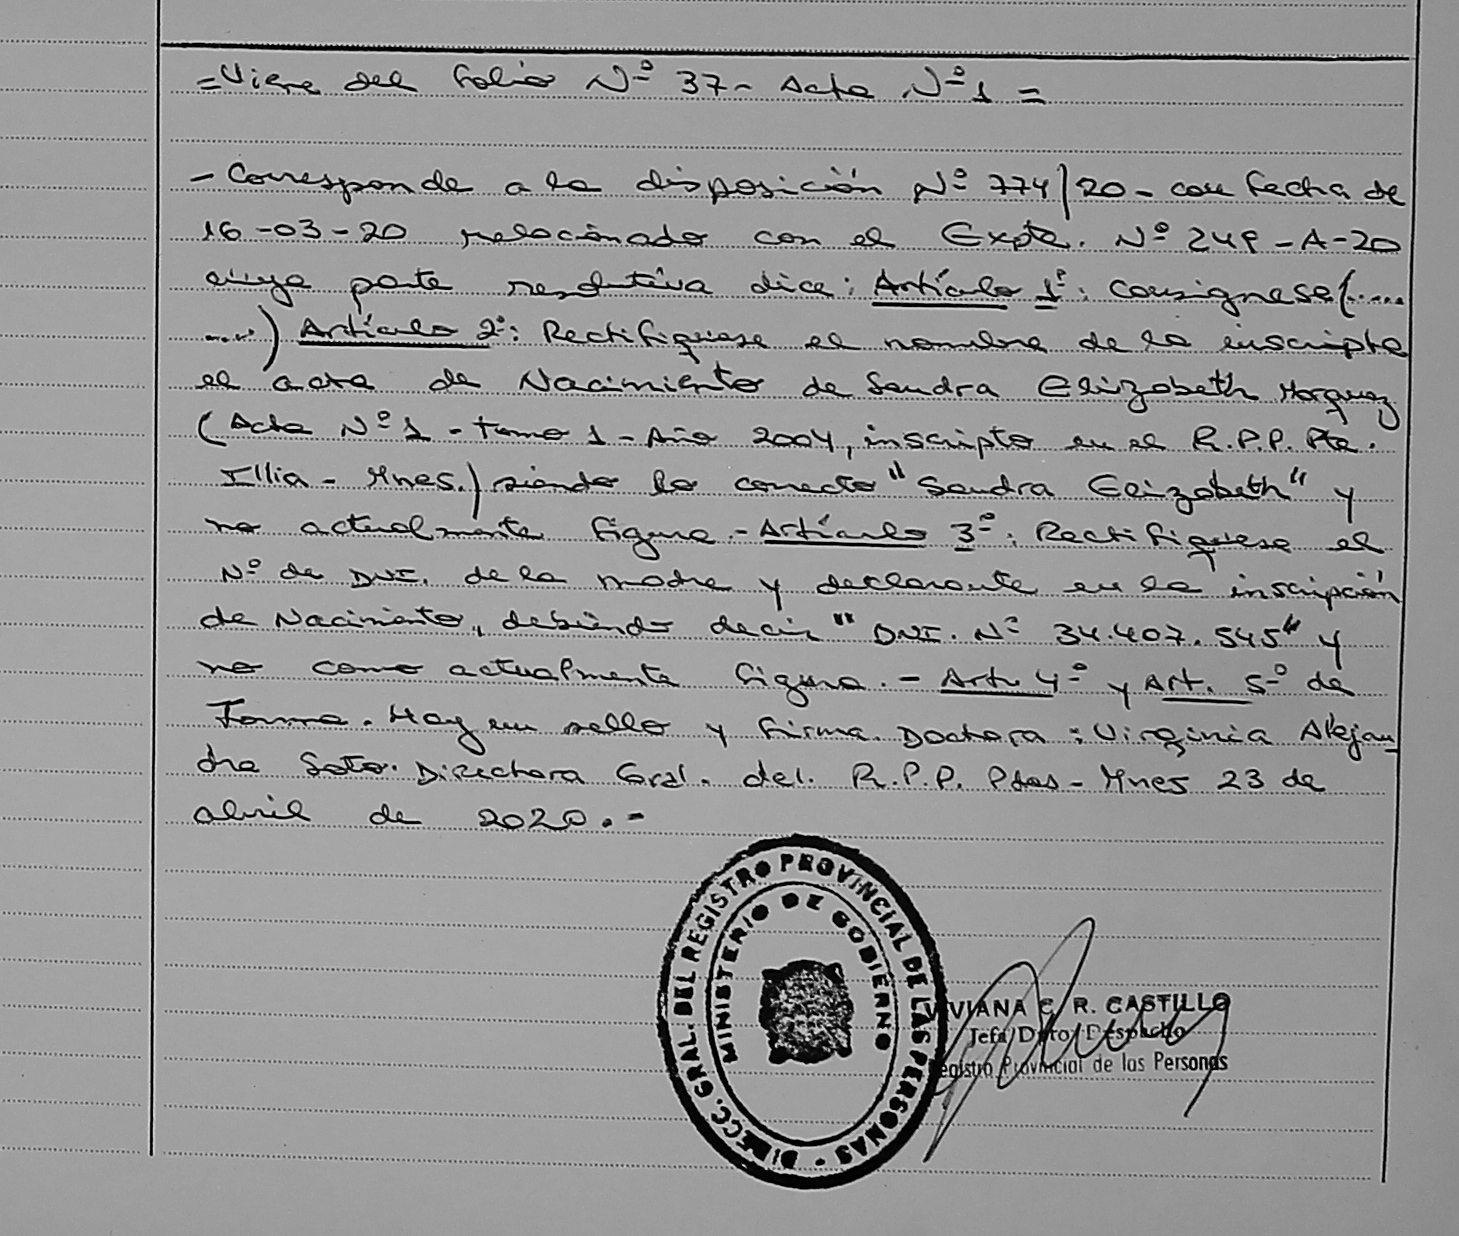 =Viene del folio Nº 37- Acta Nº1=
- Corresponde a la disposición Nº 774/20- con fecha de
16-03-20 relacionado con el Expte. Nº 249-A-20
cuya parte resolutiva dice: Artículo 1º: Consignese(.....
.....) Artículo 2º: Rectifiquese el nombre de la inscripta
el acta de Nacimiento de Sandra Elizabeth Marquez
(Acta Nº1 - tomo 1 - Año 2004, inscripto en el R.P.P. Pte.
Illia - Mnes.) siendo lo correcto "Sandra Elizabeth" y
no actualmente figura.- Artículo 3º: Rectifiquese el
Nº de DNI. de la madre y declarante en la inscripción
de Nacimiento, debiendo decir "DNI. Nº 34.407.545" y
no como actualmente figura. - Art. 4º y Art. 5º de
Forma. Hay un sello y firma Doctora: Virginia Alejan
dra Soto. Directora Gral. del. R.P.P. Pdas - Mnes 23 de
abril de 2020.-
DIRECC. GRAL. DEL REGISTRO PROVINCIAL DE LAS PERSONAS -
MINISTERIO DE GOBIERNO
VIVIANA C. R. CASTILLO
Jefa Dpto. Despacho
Registro Provincial de las Personas